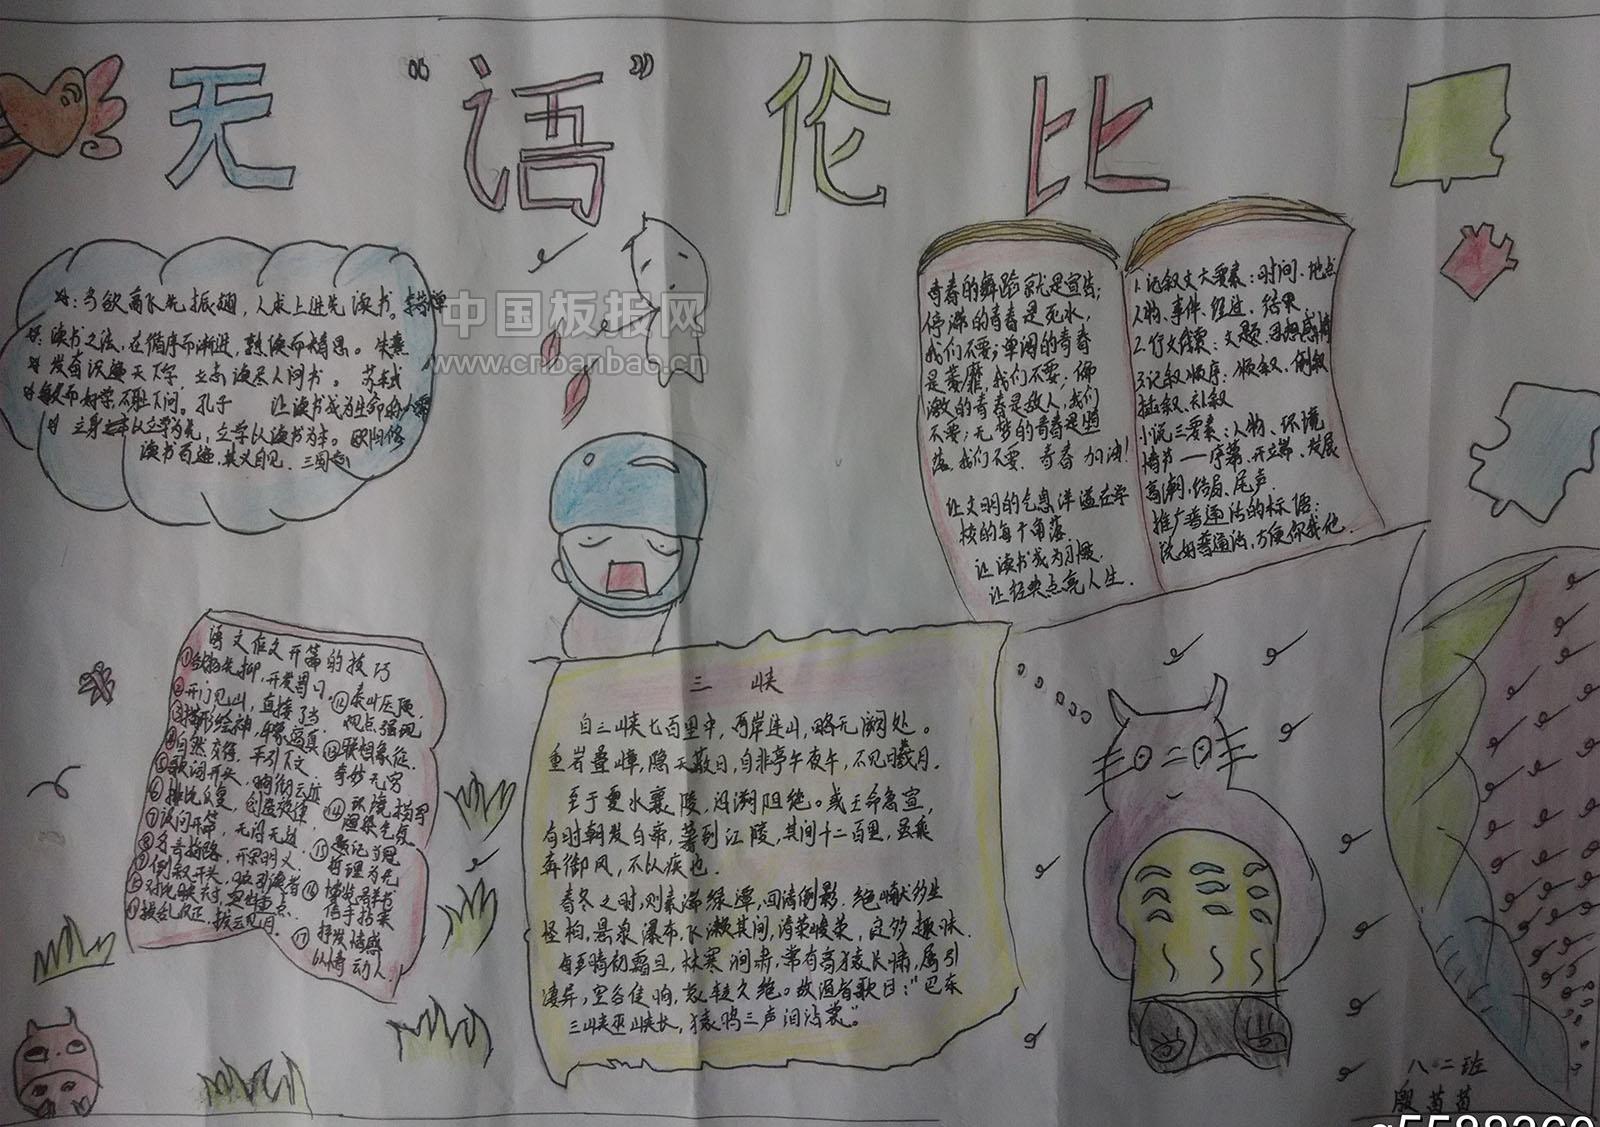 无“语”伦比
中国板报网
www.cnbanbao.cn
鸟欲高飞先振翅，人求上进先读书。李苦禅
读书之法，在循序而渐进，熟读而精思。朱熹
发奋识遍天下字，立志读尽人间书。苏轼
敏而好学不耻下问。孔子 让读书成为生命的
立身以立学为先，立学以读书为本。欧阳修
读书百遍，其义自见。三国志
青春的舞蹈就是宣告；
停滞的青春是死水，
我们不要；单调的青春
是萎靡，我们不要；偏
激的青春是敌人，我们
不要；无梦的青春是堕
落，我们不要。青春加油！
让文明的气息洋溢在学
校的每个角落
让读书成为习惯
让经典点亮人生．
1.记叙文六要素：时间、地点
人物、事件、经过、结果．
2.行文线索：文题、思想感情
3.记叙顺序：顺叙、倒叙
插叙、补叙
小说三要素：人物、环境
情节——序幕、开端、发展
高潮、结局、尾声．
推广普通话的标语：
说好普通话，方便你我他．
语文作文开篇的技巧
①欲扬先抑，开卷
②开门见山，直接了当
③描形绘神，
④自然交待，牵引下文
⑤歌词开头，
⑥排比反复，
⑦设问开篇，
⑧
⑨倒叙开头，吸引读者
⑩对比映衬，突出重点．
⑪拨乱反正，拨云见月．
⑫泰山压顶，
观点强现
⑬联想象征，
奇妙无穷
⑭环境描写
渲染气氛
⑮题记
哲理为先
⑯博览群书
信手拈来
⑰抒发情感
以情动人
三峡
自三峡七百里中，两岸连山，略无阙处。
重岩叠嶂，隐天蔽日，自非亭午夜分，不见曦月．
至于夏水襄陵，沿溯阻绝。或王命急宣，
有时朝发白帝，暮到江陵，其间千二百里，虽乘
奔御风，不以疾也．
春冬之时，则素湍绿潭，回清倒影．绝巘多生
怪柏，悬泉瀑布，飞漱其间，清荣峻茂，良多趣味．
每至晴初霜旦，林寒涧肃，常有高猿长啸，属引
凄异，空谷传响，哀转久绝。故渔者歌曰：“巴东
三峡巫峡长，猿鸣三声泪沾裳”。
八.二班
殷苗苗